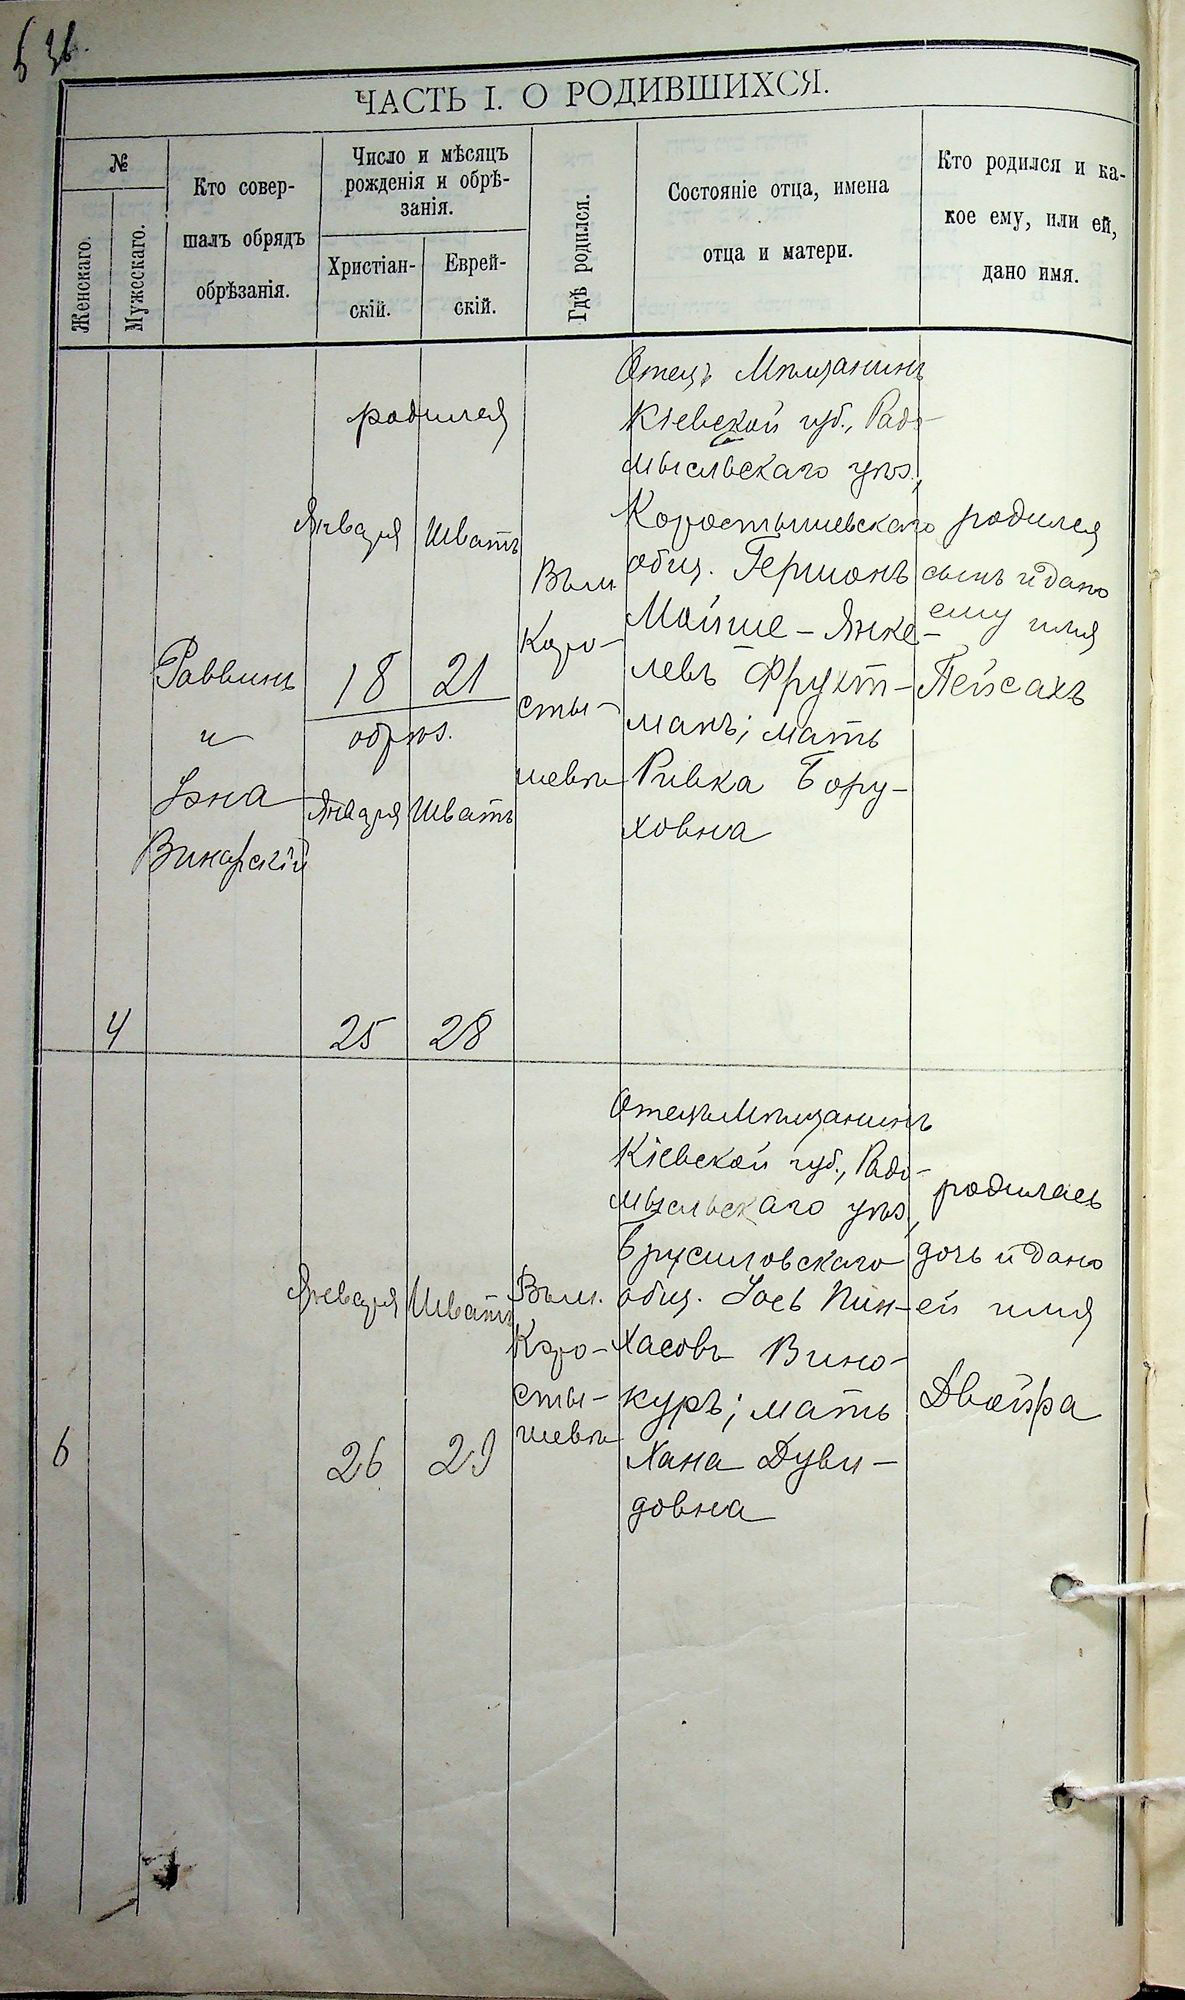 ЧАСТЬ I. О РОДИВШИХСЯ.
№
Женскаго.
Мужескаго.
Кто совер-
шалъ обрядъ
обрѣзанія.
Число и мѣсяцъ
рожденія и обрѣ-
занія.
Христіан-
скій.
Еврей-
скій.
Гдѣ родился.
Состояніе отца, имена
отца и матери.
Кто родился и ка-
кое ему, или ей,
дано имя.
4
Раввинъ
и
Винарскій
родился
Января Шватъ
18 21
обрѣз.
Января Шватъ
25 28
Въ м.
Коро-
сты-
шевѣ
Отецъ Мѣщанинъ
Кіевской губ., Радо-
мысльскаго уѣз.,
Коростышевскаго
общ. Гершонъ
Мойше-Янке-
левъ Фрукт-
манъ; мать
Ривка Бору-
ховна
родился
сынъ и дано
ему имя
Пейсахъ
6
Января Шватъ
26 29
Въ м.
Коро-
сты-
шевѣ
Отецъ Мѣщанинъ
Кіевской губ., Радо-
мысльскаго уѣз.,
Брусиловскаго
общ. Іось Пин-
хасовъ Вино-
куръ; мать
Хана Дуви-
довна
родилась
дочь и дано
ей имя
Двойра